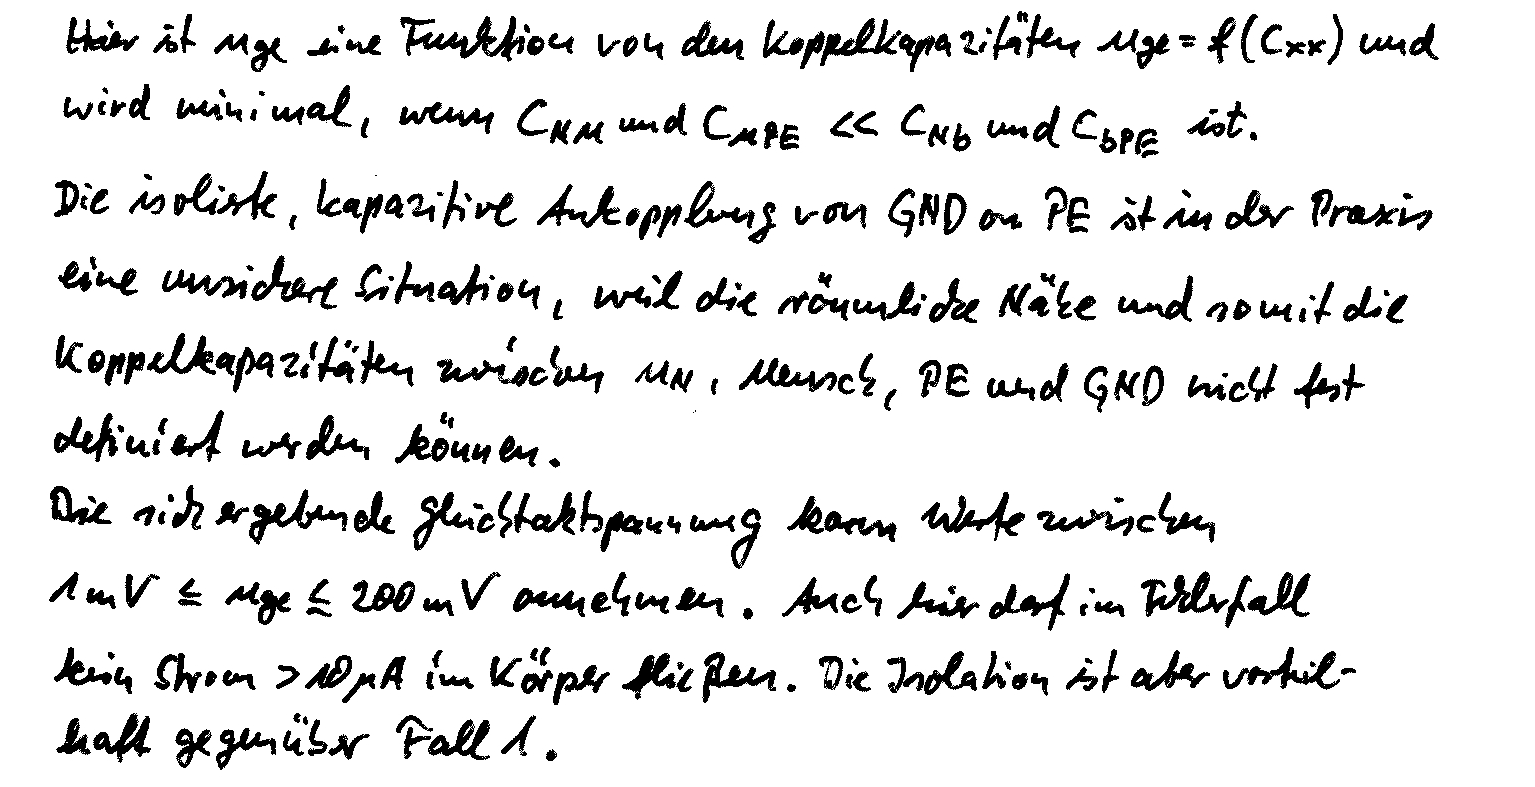 Hier ist uge eine Funktion von den Koppelkapazitäten uge = f(Cxx) und
wird minimal, wenn CNM und CMPE << CNb und CbPE ist.
Die isolierte, kapazitive Ankopplung von GND an PE ist in der Praxis
eine unsichere Situation, weil die räumliche Nähe und somit die
Koppelkapazitäten zwischen uN, Mensch, PE und GND nicht fest
definiert werden können.
Die sich ergebende Gleichtaktspannung kann Werte zwischen
1mV ≤ uge ≤ 200mV annehmen. Auch hier darf im Fehlerfall
kein Strom > 10µA im Körper fließen. Die Isolation ist aber vorteil-
haft gegenüber Fall 1.